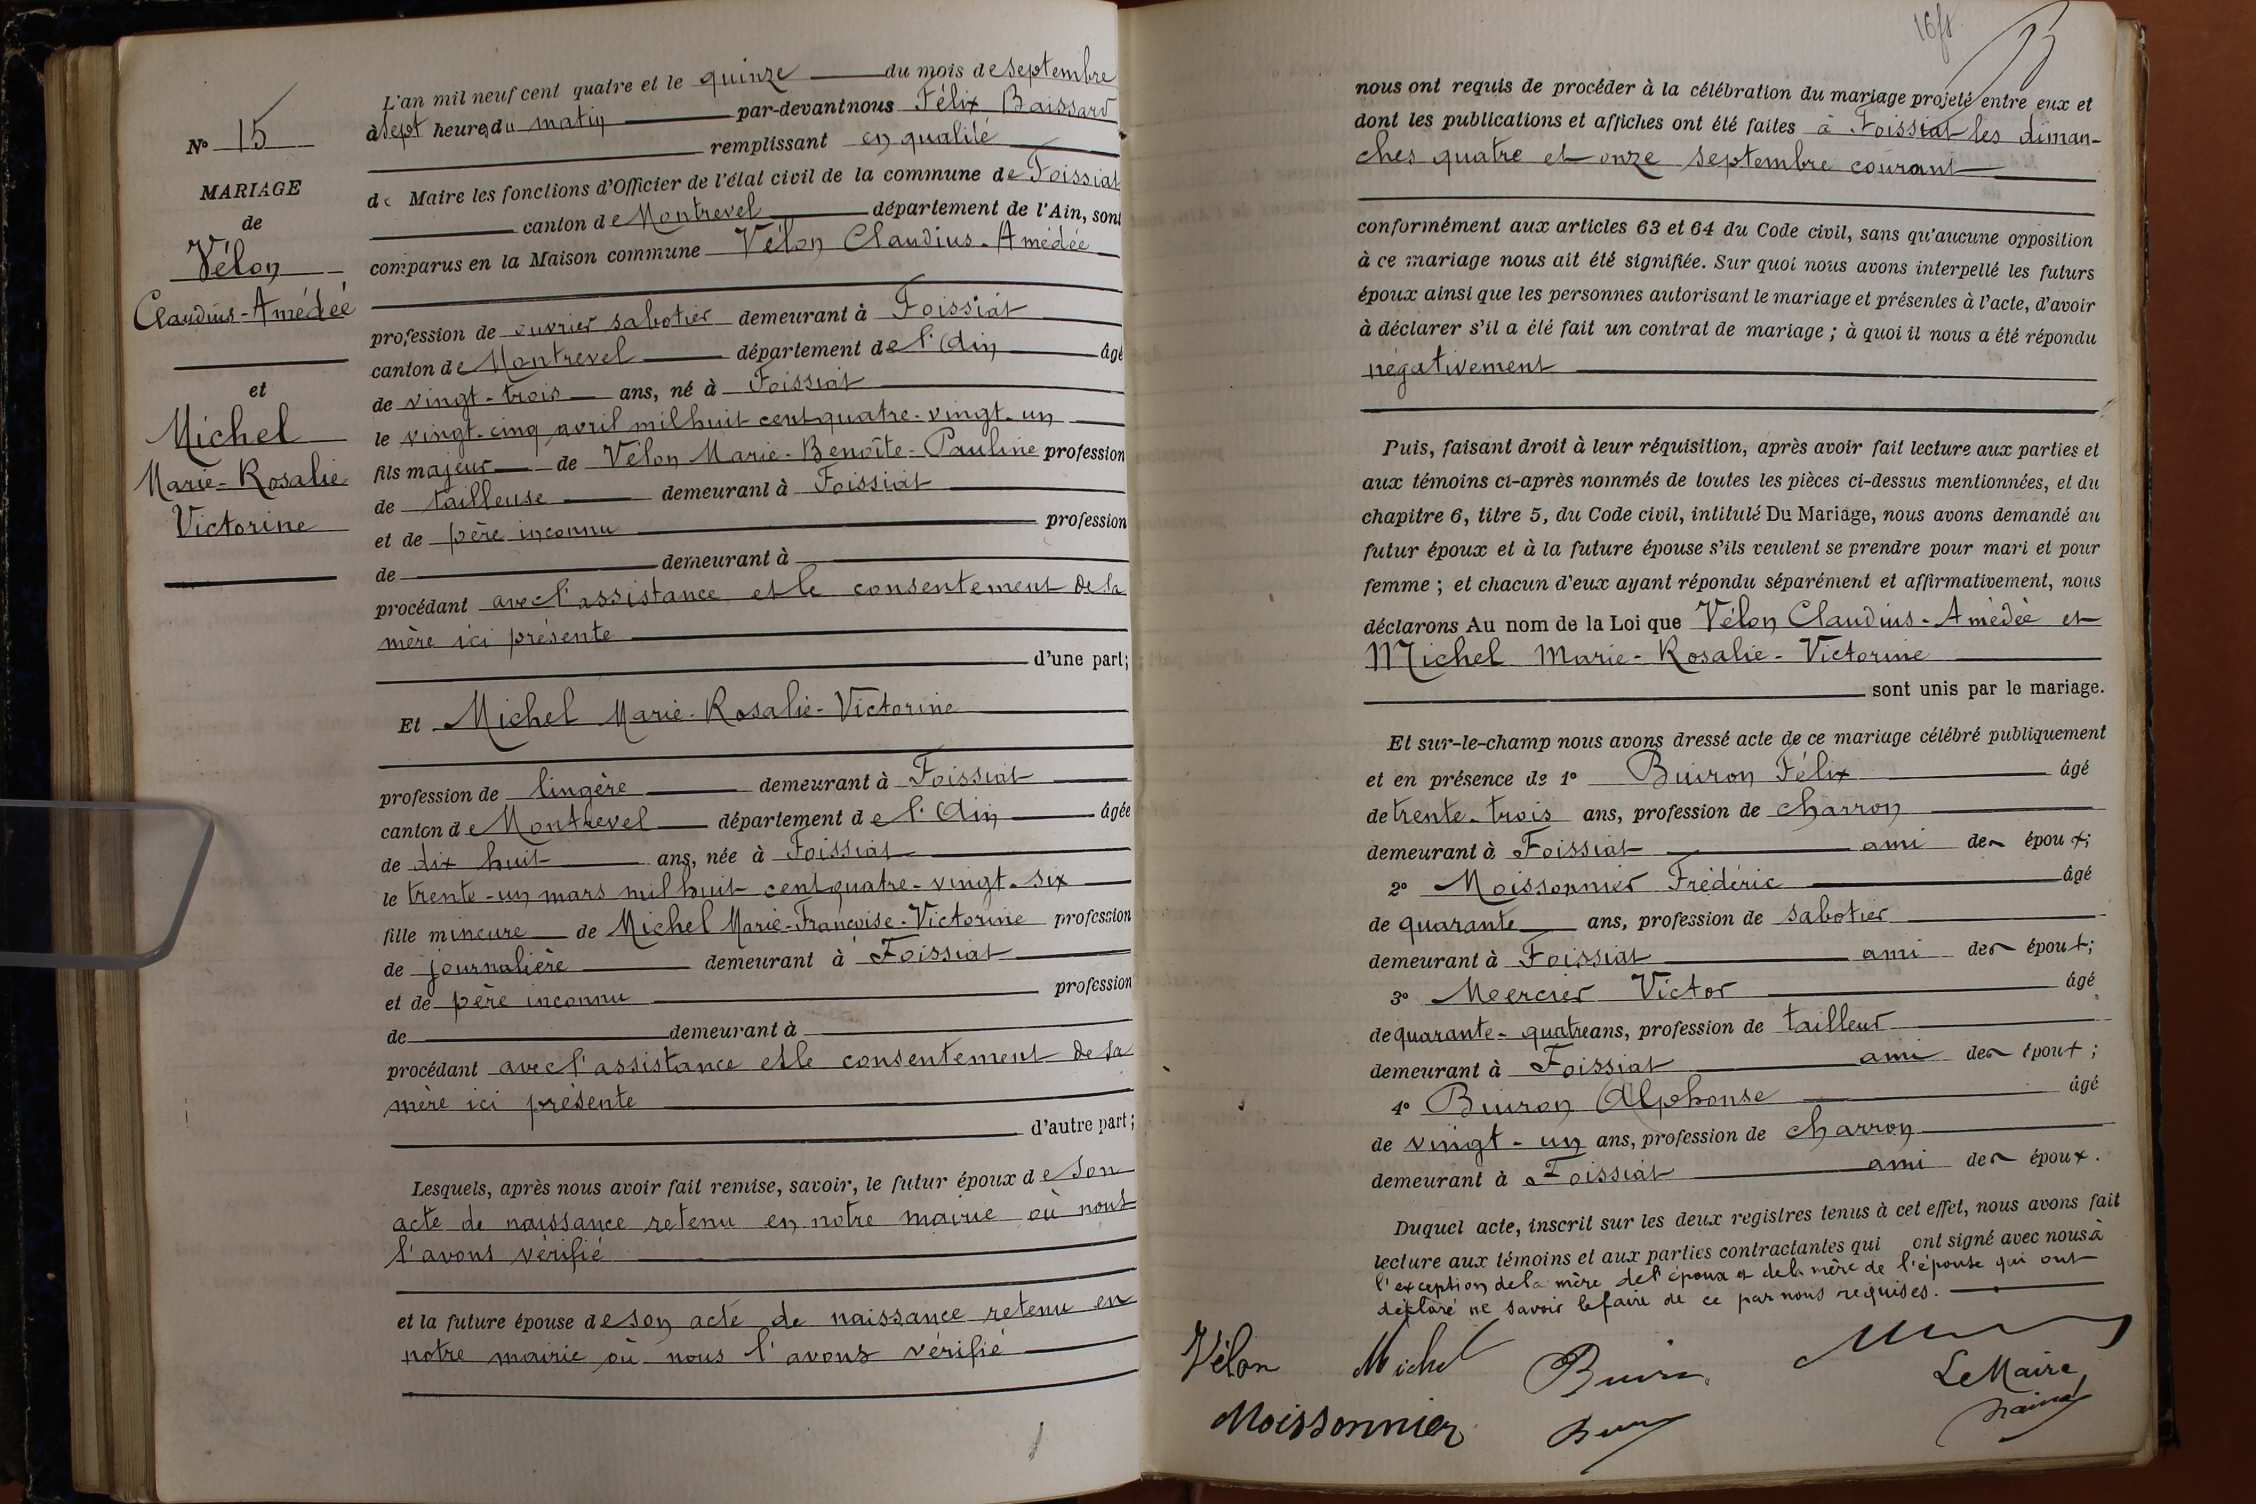 N° 15
MARIAGE
de
Vélon
Claudius-Amédée
et
Michel
Marie-Rosalie
Victorine
L'an mil neuf cent quatre et le quinze du mois de septembre
à sept heures du matin par-devant nous Félix Baissard
remplissant en qualité
de Maire les fonctions d'Officier de l'état civil de la commune de Foissiat
canton de Montrevel département de l'Ain, sont
comparus en la Maison commune Vélon Claudius-Amédée
profession de ouvrier sabotier demeurant à Foissiat
canton de Montrevel département de l'Ain âgé
de vingt-trois ans, né à Foissiat
le vingt-cinq avril mil huit cent quatre-vingt-un
fils majeur de Vélon Marie-Benoîte-Pauline profession
de tailleuse demeurant à Foissiat
et de père inconnu profession
de demeurant à
procédant avec l'assistance et le consentement de sa
mère ici présente
d'une part;
Et Michel Marie-Rosalie-Victorine
profession de lingère demeurant à Foissiat
canton de Montrevel département de l'Ain âgée
de dix huit ans, née à Foissiat
le trente-un mars mil huit cent quatre-vingt-six
fille mineure de Michel Marie-Françoise-Victorine profession
de journalière demeurant à Foissiat
et de père inconnu profession
de demeurant à
procédant avec l'assistance et le consentement de sa
mère ici présente
d'autre part;
Lesquels, après nous avoir fait remise, savoir, le futur époux de son
acte de naissance retenu en notre mairie où nous
l'avons vérifié
et la future épouse de son acte de naissance retenu en
notre mairie où nous l'avons vérifié
16ft
nous ont requis de procéder à la célébration du mariage projeté entre eux et
dont les publications et affiches ont été faites à Foissiat les diman-
ches quatre et onze septembre courant
conformément aux articles 63 et 64 du Code civil, sans qu'aucune opposition
à ce mariage nous ait été signifiée. Sur quoi nous avons interpellé les futurs
époux ainsi que les personnes autorisant le mariage et présentes à l'acte, d'avoir
à déclarer s'il a été fait un contrat de mariage ; à quoi il nous a été répondu
négativement
Puis, faisant droit à leur réquisition, après avoir fait lecture aux parties et
aux témoins ci-après nommés de toutes les pièces ci-dessus mentionnées, et du
chapitre 6, titre 5, du Code civil, intitulé Du Mariage, nous avons demandé au
futur époux et à la future épouse s'ils veulent se prendre pour mari et pour
femme ; et chacun d'eux ayant répondu séparément et affirmativement, nous
déclarons Au nom de la Loi que Vélon Claudius-Amédée et
Michel Marie-Rosalie-Victorine
sont unis par le mariage.
Et sur-le-champ nous avons dressé acte de ce mariage célébré publiquement
et en présence de 1° Buiron Félix âgé
de trente-trois ans, profession de charron
demeurant à Foissiat ami des époux;
2° Moissonnier Frédéric âgé
de quarante ans, profession de sabotier
demeurant à Foissiat ami des époux;
3° Mercier Victor âgé
de quarante-quatre ans, profession de tailleur
demeurant à Foissiat ami des époux;
4° Buiron Alphonse âgé
de vingt-un ans, profession de charron
demeurant à Foissiat ami des époux.
Duquel acte, inscrit sur les deux registres tenus à cet effet, nous avons fait
lecture aux témoins et aux parties contractantes qui ont signé avec nous à
l'exception de la mère de l'époux et de la mère de l'épouse qui ont
déclaré ne savoir le faire de ce par nous requises.
Vélon Michel Buiron
Le Maire
Moissonnier